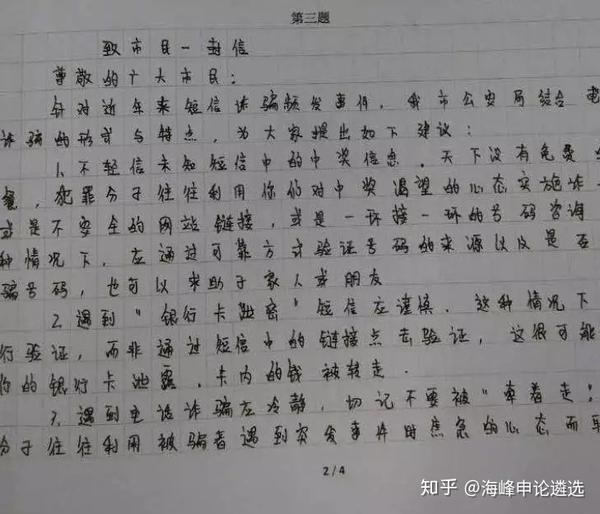 第三题
致市民一封信
尊敬的广大市民：
针对近年来短信诈骗频发事件，我市公安局结合电
诈骗的形式与特点，为大家提出如下建议：
1.不轻信未知短信中的中奖信息．天下没有免费
餐，犯罪分子往往利用你们对中奖渴望的心态实施诈
或是不安全的网站链接，或是一环接一环的号码咨询
种情况下，应通过可靠方式验证号码的来源以及是否
骗号码，也可以求助于家人或朋友
2.遇到"银行卡" 短信应谨慎．这种情况下
行验证，而非通过短信中的链接点去验证，这很可能
你的银行卡泄露．卡内的钱被转走．
3.遇到电话诈骗应冷静，切记不要被"牵着走"
分子往往利用被骗者遇到突发事件时焦急的心态而
2/4
知乎 @海峰申论遴选